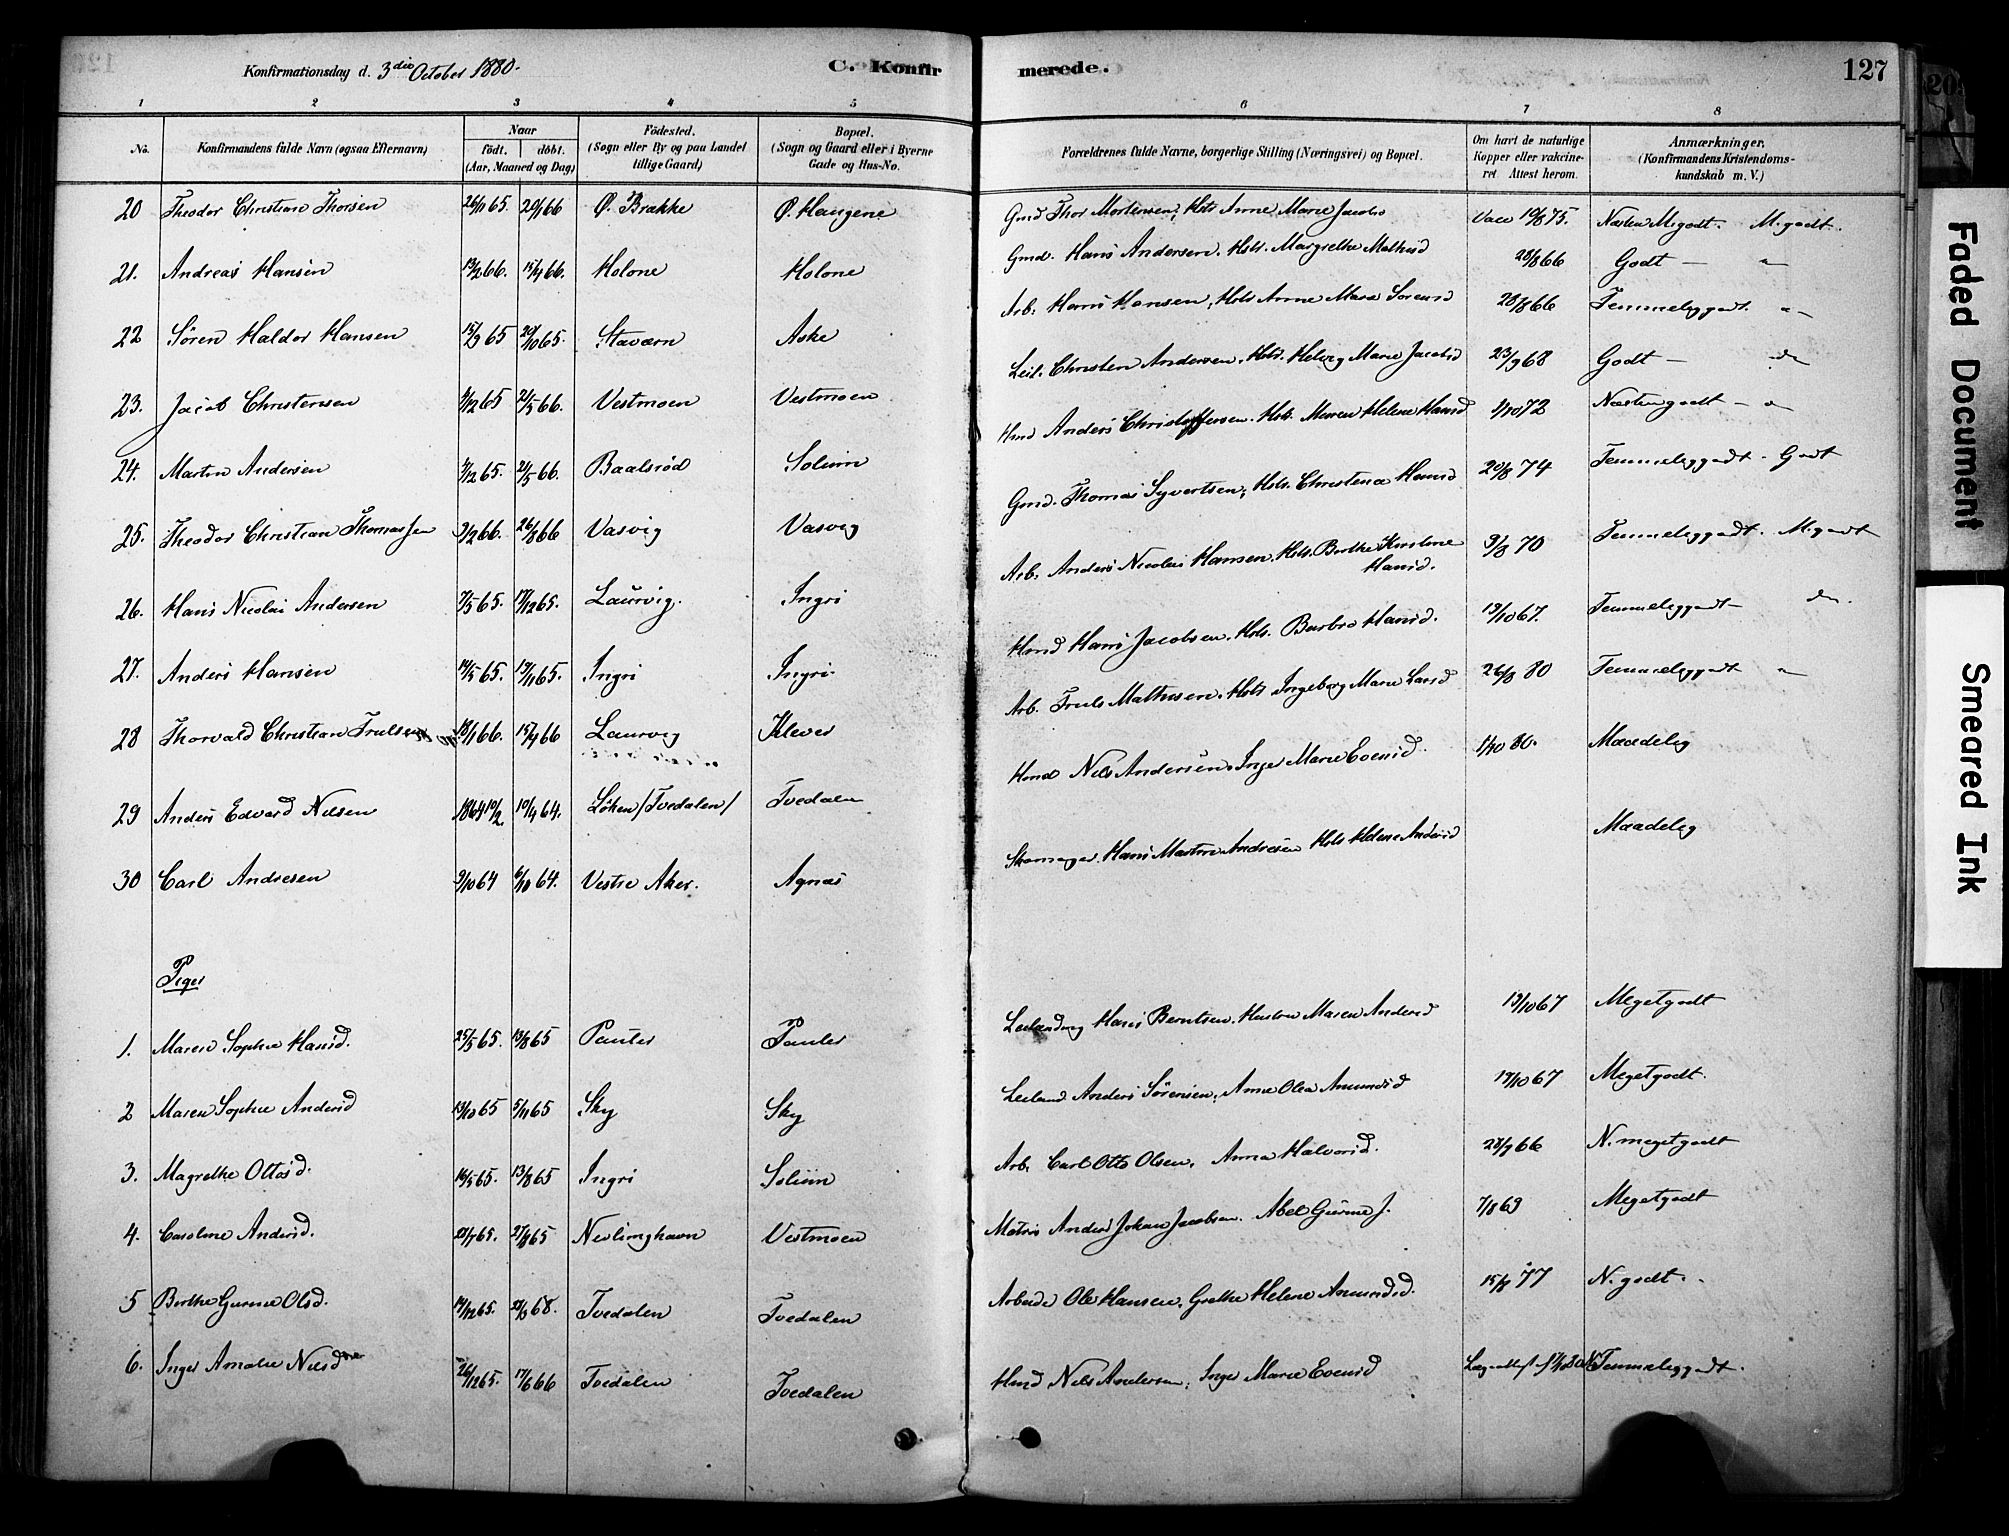 Konfirmationsdag d. 3die October 1880. C. Konfirmerede. 127
1 2 3 4 5 6 7 8
No. Konfirmandens fulde Navn (ogsaa Efternavn) Naar födt. döbt. (Aar, Maaned og Dag) Födested. (Sogn eller By og paa Landet tillige Gaard) Bopæl. (Sogn og Gaard eller i Byerne Gade og Hus-No. Forældrenes fulde Navne, borgerlige Stilling (Næringsvei) og Bopæl. Om havt de naturlige Kopper eller vakcineret. Attest herom. Anmærkninger. (Konfirmandens Kristendomskundskab m. V.)
20 Theodor Christian Thorsen 26/11 65. 20/1 66 Ø. Brække Ø. Haugene Gmd Thor Mortensen, Hst. Anne Marie Jacobs Vacc 19/8 75. Næsten M. godt. M. godt.
21. Andreas Hansen 13/2 66. 15/4 66. Holone Holone Gmd. Hans Andersen. Hst. Margrethe Mathisd 28/8 66 Godt — "
22 Søren Haldor Hansen 15/9 65 29/10 65. Stavern Aske Arb. Hans Hansen, Hst. Anne Marie Sørensd 28/8 66 Temmeliggodt. "
23. Jacob Christensen 4/12 65 21/5 66. Vestmoen Vestmoen Leil. Christen Andersen. Hst. Helvig Marie Jacobsd 23/9 68 Godt — do
24. Martin Andersen 3/12 65. 21/5 66. Baalsrød Solum Hmd Anders Christoffersen. Hst. Maren Helene Hansd 1/10 72 Næsten godt — "
25. Theodor Christian Thomassen 9/2 66. 26/8 66 Vasvig Vasvig Gmd. Thomas Syvertsen, Hst. Christence Hansd 20/8 74 Temmeliggodt. Godt
26. Hans Nicolai Andersen 7/5 65. 17/12 65. Laurvig. Ingri Arb. Anders Nicolai Hansen. Hst. Berthe Kirstine Hansd. 9/8 70 Temmeliggodt. M. godt
27. Anders Hansen 14/5 65. 19/11 65. Ingri Ingri. Hmd Hans Jacobsen. Hst. Barbro Hansd. 19/10 67. Temmeliggodt — do.
28 Thorvald Christian Trulsen 18/1 66. 15/4 66 Laurvig Klever Arb. Truls Mathisen. Hst. Ingeborg Marie Larsd 26/8 80 Temmeliggodt "
29 Anders Edvard Nilsen 1864 10/2. 10/4 64. Løken /Tvedalen/ Tvedalen Hmd Nils Andersen. Inger Marie Evensd. 1/10 80. Maadelig
30 Carl Andresen 9/10 64 64. Vestre Aker. Agnæs Skomager. Hans Martin Andresen Hst. Helene Andersd Maadelig
Piger
1. Maren Sophie Hansd. 25/5 65. 13/8 65 Pauler Pauler Leilending Hans Berntsen. Hustru Maren Andersd 19/10 67 Megetgodt
2 Maren Sophie Andersd 13/10 65 5/11 65 Sky Sky Leiland Anders Sørensen, Anne Olea Amundsd 19/10 67 Megetgodt.
3. Magrethe Ottosd. 14/5 65. 13/8 65 Ingri Solum Arb. Carl Otto Olsen. Anna Halvorsd. 28/9 66 N. megetgodt
4. Caroline Andersd. 23/7 65. 27/8 65 Nevlunghavn Vestmoen Matros Anders Johan Jacobsen. Abel Gurine J. 7/8 69 Megetgodt
5 Berthe Gurine Olsd. 14/12 65. 68. Tvedalen Tvedalen Arbeider Ole Hansen, Grethe Helene Amundsd. 15/8 77 N. godt.
6. Inger Amalie Nilsd 26/12 65. 17/6 66 Tvedalen Tvedalen Hmd Nils Andersen, Inger Marie Evensd Temmeliggodt.
Faded Document
Smeared Ink